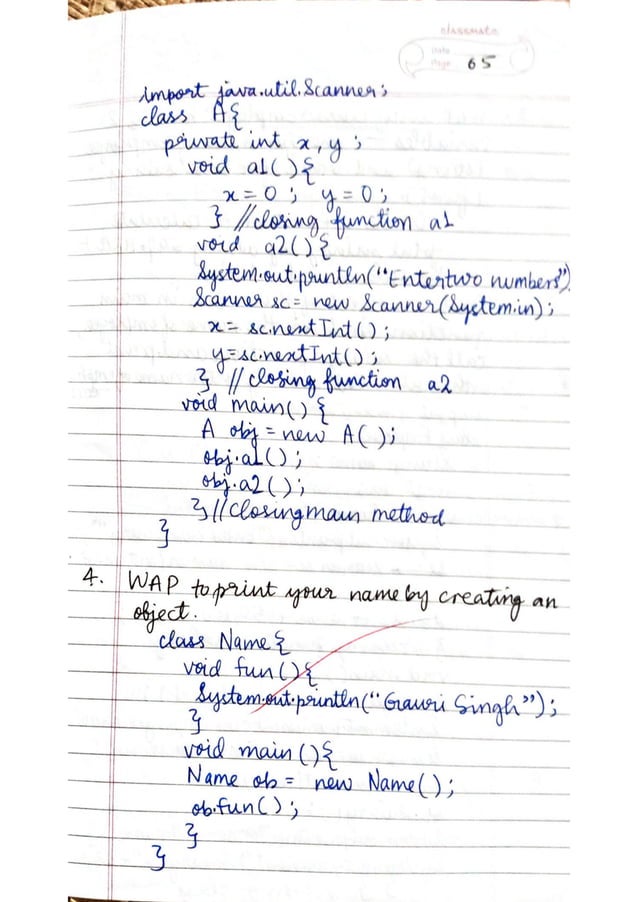 classmate
Date
Page 65
import java.util.Scanner;
class A{
private int x, y ;
void a1(){
x = 0 ; y = 0 ;
} //closing function a1
void a2(){
System.out.println("Entertwo numbers")
Scanner sc = new Scanner(System.in);
x = sc.nextInt();
y=sc.nextInt();
} //closing function a2
void main() {
A obj = new A();
obj.a1();
obj.a2();
} //closing main method
}
4. WAP to print your name by creating an
object.
class Name {
void fun(){
System.out.println("Gauri Singh");
}
void main (){
Name ob = new Name();
ob.fun();
}
}